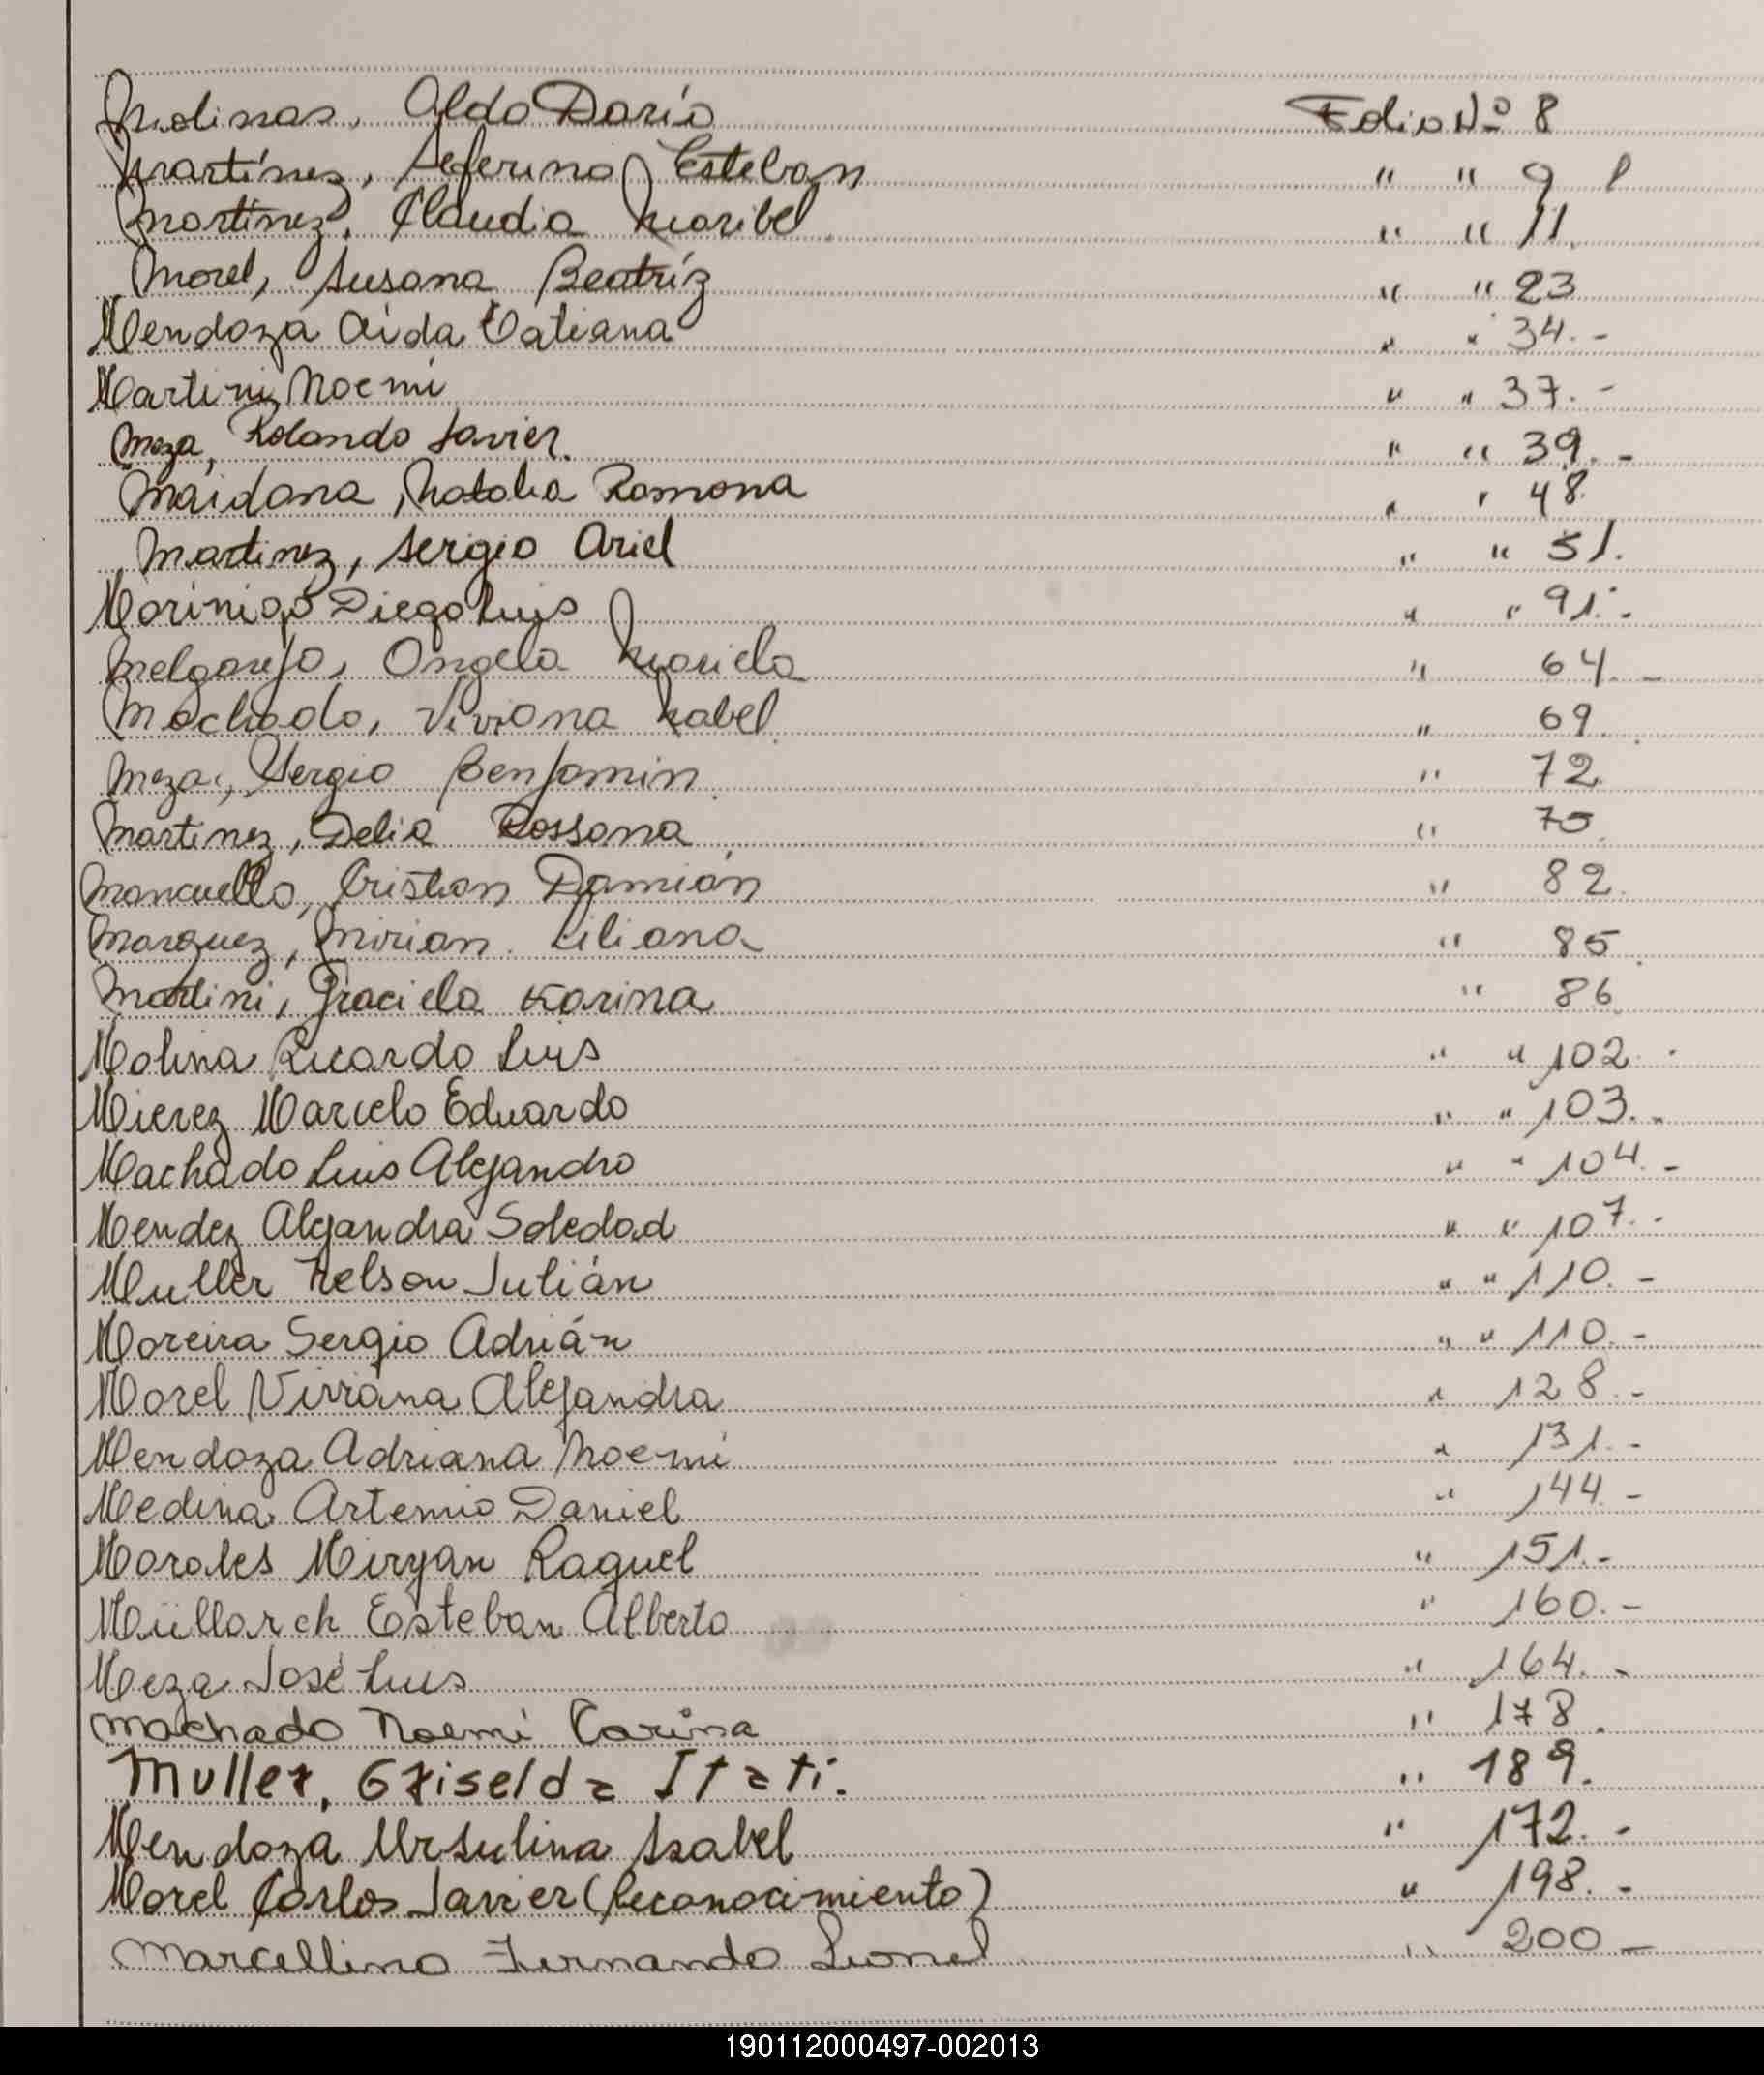 Molinas, Aldo Darío Folio Nº 8
Martínez, Seferino Esteban " " 9
Martínez, Claudia Maribel " " 11.
Morel, Susana Beatríz " " 23
Mendoza Aida Tatiana " " 34.-
Martini Noemi " " 37.-
Meza, Rolando Javier. " " 39.-
Maidana, Natalia Ramona " " 48.
Martinez, Sergio Ariel " " 51.
Morinigo Diego Luis " " 91.-
Melgarejo, Angela Mariela " 64.-
Machado, Viviana Isabel " 69.
Meza, Sergio Benjamin. " 72
Martinez, Delia Rossana " 75.
Mancuello, Cristian Damián " 82.
Marquez, Mirian Liliana " 85.
Martini, Graciela Karina " 86
Molina Ricardo Luis " " 102.-
Mierez Marcelo Eduardo " " 103.-
Machado Luis Alejandro " " 104.-
Mendez Alejandra Soledad " " 107.-
Muller Nelson Julián " " 110.-
Moreira Sergio Adrián " " 110.-
Morel Viviana Alejandra " 128.-
Mendoza Adriana Noemi " 131.-
Medina Artemio Daniel " 144.-
Morales Miryan Raquel " 151.-
Müllorch Esteban Alberto " 160.-
Meza José Luis " 164.-
Machado Noemi Carina " 178.
Muller, Griselda Itati. " 189.
Mendoza Ursulina Isabel " 172.-
Morel Carlos Javier (Reconocimiento) " 198.-
Marcellino Fernando Leonel " 200-
190112000497-002013